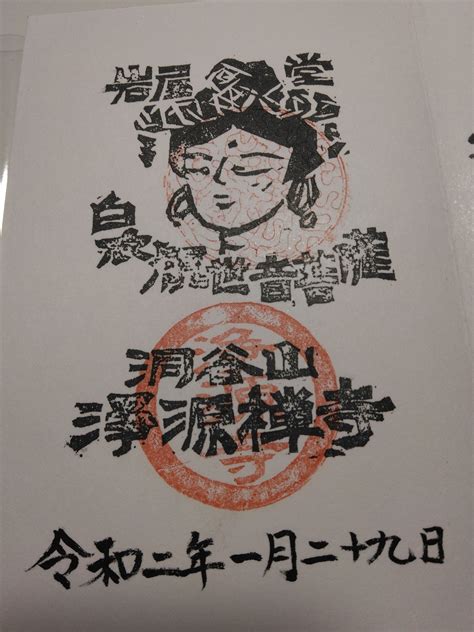 岩屋堂
白衣観世音菩薩
洞谷山
浄源禅寺
令和二年一月二十九日